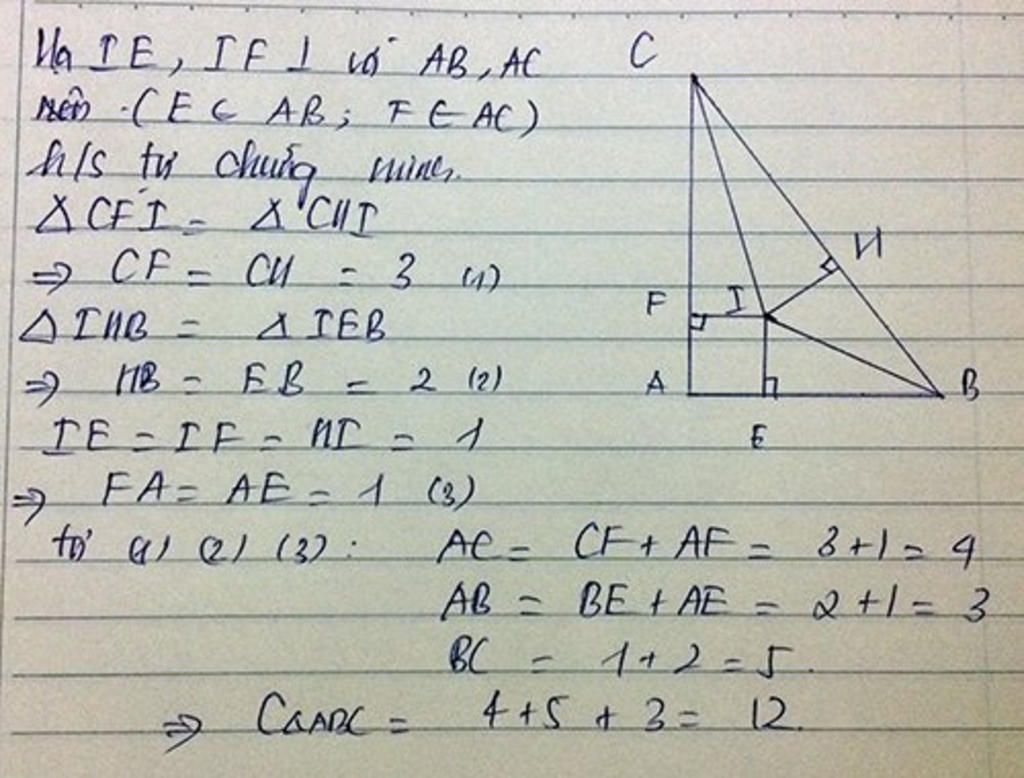 Hạ IE, IF ⊥ với AB, AC
nên (E ∈ AB; F ∈ AC)
h/s tự chứng minh.
Δ CFI = Δ CHI
⇒ CF = CH = 3 (1)
Δ IHB = Δ IEB
⇒ HB = EB = 2 (2)
IE = IF = HI = 1
⇒ FA = AE = 1 (3)
từ (1) (2) (3) : AC = CF + AF = 3 + 1 = 4
AB = BE + AE = 2 + 1 = 3
BC = 1 + 2 = 5.
⇒ CΔABC = 4 + 5 + 3 = 12.
C
H
F I
A B
E